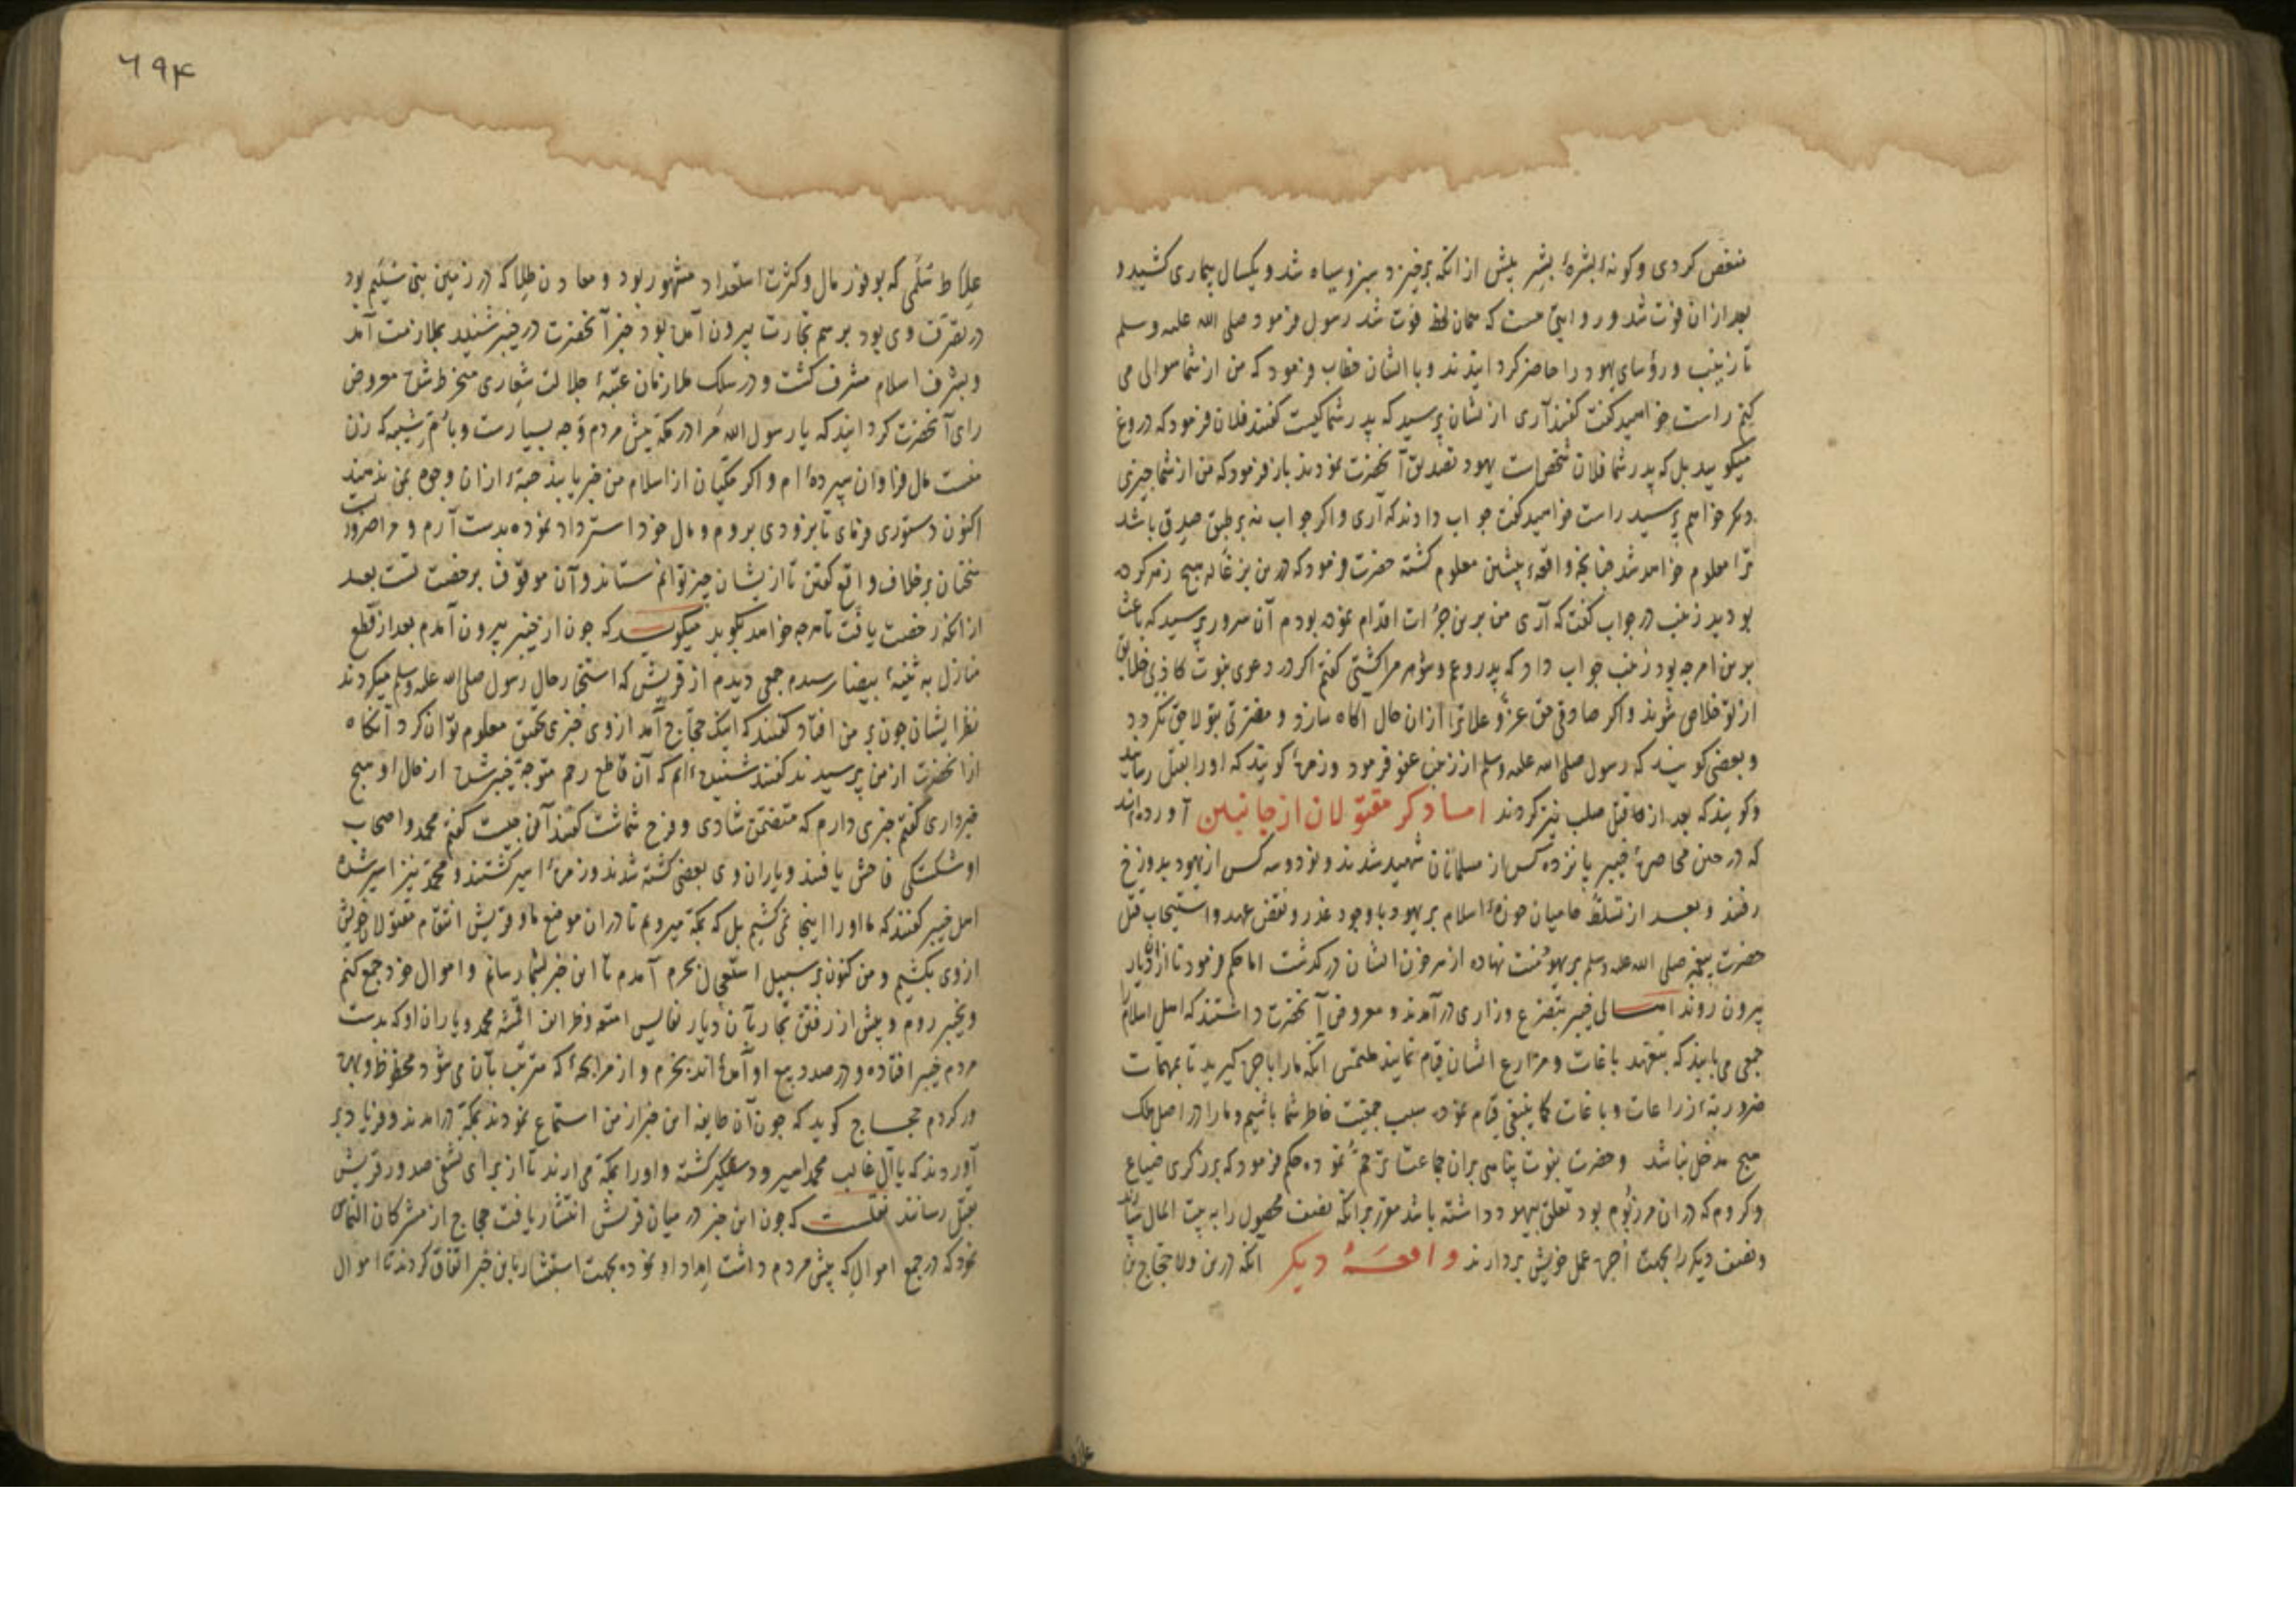 منغص کردی و کونهٔ بشرهٔ بشر پیش از انکه برخیزد سبز و سیاه شد و یکسال بیماری کشید و
بعد از ان فوت شد و روایتی هست که همان لحظه فوت شد رسول فرمود صلی الله علیه وسلم
تا زینب و رؤسای یهود را حاضر کردانیدند و با ایشان خطاب فرمود که من از شما سوالی می
کنم راست خواهید کفت کفتند آری از یشان پرسید که پدر شما کیست کفتند فلان فرمود که دروغ
میکویید بل که پدر شما فلان شخص است یهود تصدیق آنحضرت نمودند باز فرمود که من از شما چیزی
دیکر خواهم پرسید راست خواهید کفت جواب دادند که آری و اکر جواب نه بر طبق صدق باشد
ترا معلوم خواهد شد چنانچه واقعهٔ پیشین معلوم کشته حضرت فرمود که درین بزغاله هیچ زهر کرده
بودید زینب در جواب کفت که آری من برین جرأت اقدام نموده بودم آن سرور پرسید که باعث
برین امر چه بود زینب جواب داد که پدر و عم و شوهر مرا کشتی کفتم اکر در دعوی نبوت کاذبی خلایق
از تو خلاص شوند و اکر صادقی حق عز و علا ترا از ان حال آکاه سازد و مضرتی بتو لاحق نکردد
و بعضی کویند که رسول صلی الله علیه وسلم از زینب عفو فرمود و زمرهٔ کویند که اورا بقتل رسانید
و کویند که بعد از قتل صلب نیز کردند اما ذکر مقتولان از جانبین آورده‌اند
که در حین محاصرهٔ خیبر پانزده کس از مسلمانان شهید شدند و نود و سه کس از یهود بدوزخ
رفتند و بعد از تسلط حامیان حوزهٔ اسلام بر یهود با وجود غدر و نقض عهد و استیجاب قتل
حضرت پیغمبر صلی الله علیه وسلم بر یهود منت نهاده از سر خون ایشان درکذشت اما حکم فرمود تا از ان دیار
بیرون روند اهالی خیبر بتضرع و زاری درآمدند و معروض آنحضرت داشتند که اهل اسلام را
جمعی می‌باید که بتعهد باغات و مزارع ایشان قیام نمایند ملتمس انکه مارا باجره کیرید تا بمهمات
ضروریهٔ زراعات و باغات کما ینبغی قیام نموده سبب جمعیت خاطر شما باشیم و مارا در اصل ملک
هیچ مدخل نباشد و حضرت نبوت پناهی بران جماعت ترحم نموده حکم فرمود که برزکری ضیاع
و کروم که در ان مرزبوم بود تعلق بیهود داشته باشد مقرر بر انکه نصف محصول را به بیت المال رسانند
و نصف دیکر را بجهت اجرهٔ عمل خویش بردارند واقعهٔ دیکر انکه درین ولا حجاج بن
علاط
٦٩۴
علاط سلمی که بوفور مال و کثرت استعداد مشهور بود و معادن طلا که در زمین بنی سلیم بود
در تصرف وی بود برسم تجارت بیرون آمده بود خبر آنحضرت در خیبر شنیده بملازمت آمد
و بشرف اسلام مشرف کشت و در سلک ملازمان عتبهٔ جلالت شعاری منخرط شده معروض
رای آنحضرت کردانید که یا رسول الله مرا در مکه پیش مردم وجه بسیارست و بام شیبه که زن
منست مال فراوان سپرده‌ام و اکر مکیان از اسلام من خبر یابند حبهٔ از ان وجوه بمن ندهند
اکنون دستوری فرمای تا بزودی بروم و مال خود استرداد نموده بدست آرم و مرا ضرورست
سخنان بر خلاف واقع کفتن تا از یشان چیز توانم ستاند و آن موقوف برخصت تست بعد
از انکه رخصت یافت تا هر چه خواهد بکوید میکوید که چون از خیبر بیرون آمدم بعد از قطع
منازل به ثنیهٔ بیضا رسیدم جمعی دیدم از قریش که استخبار حال رسول صلی الله علیه وسلم میکردند
نظر ایشان چون بر من افتاد کفتند که اینک حجاج آمد از وی خبری محقق معلوم توان کرد آنکاه
از آنحضرت از من پرسیدند کفتند شنیده‌ایم که آن قاطع رحم متوجه خیبر شده از حال او هیچ
خبر داری کفتم خبری دارم که متضمن شادی و فرح شماست کفتند آن چیست کفتم محمد و اصحاب
او شکستکی فاحش یافتند و یاران وی بعضی کشته شدند و زمرهٔ اسیر کشتند و محمد نیز اسیر شده
اهل خیبر کفتند که ما اورا اینجا نمی‌کشیم بل که بمکه میرویم تا در ان موضع ما و قریش انتقام مقتولان خویش
از وی بکشیم و من کنون بر سبیل استعجال بحرم آمدم تا این خبر بشما رسانم و اموال خود جمع کنم
و بخیبر روم و پیش از رفتن تجار بآن دیار نفایس امتعه و ظرایف اقمشه محمد و یاران او که بدست
مردم خیبر افتاده و در صدد بیع او آمده‌اند بخرم و از مرابحهٔ که مترتب بآن می‌شود محظوظ و بهره
ور کردم حجاج کوید که چون آن طایفه این خبر از من استماع نمودند بمکه درآمدند و فریاد بر
آوردند که یا آل غالب محمد اسیر و دستکیر کشته و اورا بمکه می‌ارند تا از برای تشفی صدور قریش
بقتل رسانند نقلست که چون این خبر در میان قریش انتشار یافت حجاج از مشرکان التماس
نمود که در جمع اموالی که پیش مردم داشت امداد او نموده بجهت استبشار باین خبر اتفاق کردند تا اموال